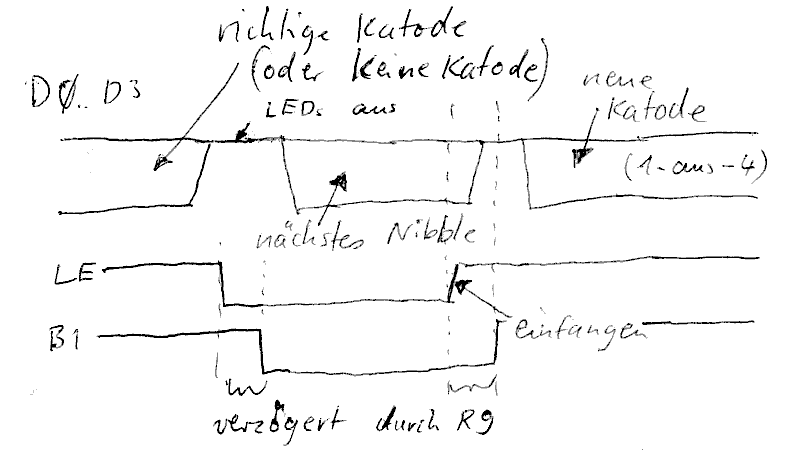 richtige Katode
(oder keine Katode)
D0.. D3
LEDs aus
neue
Katode
(1-aus-4)
nächstes Nibble
LE
B1
einfangen
verzögert durch R9